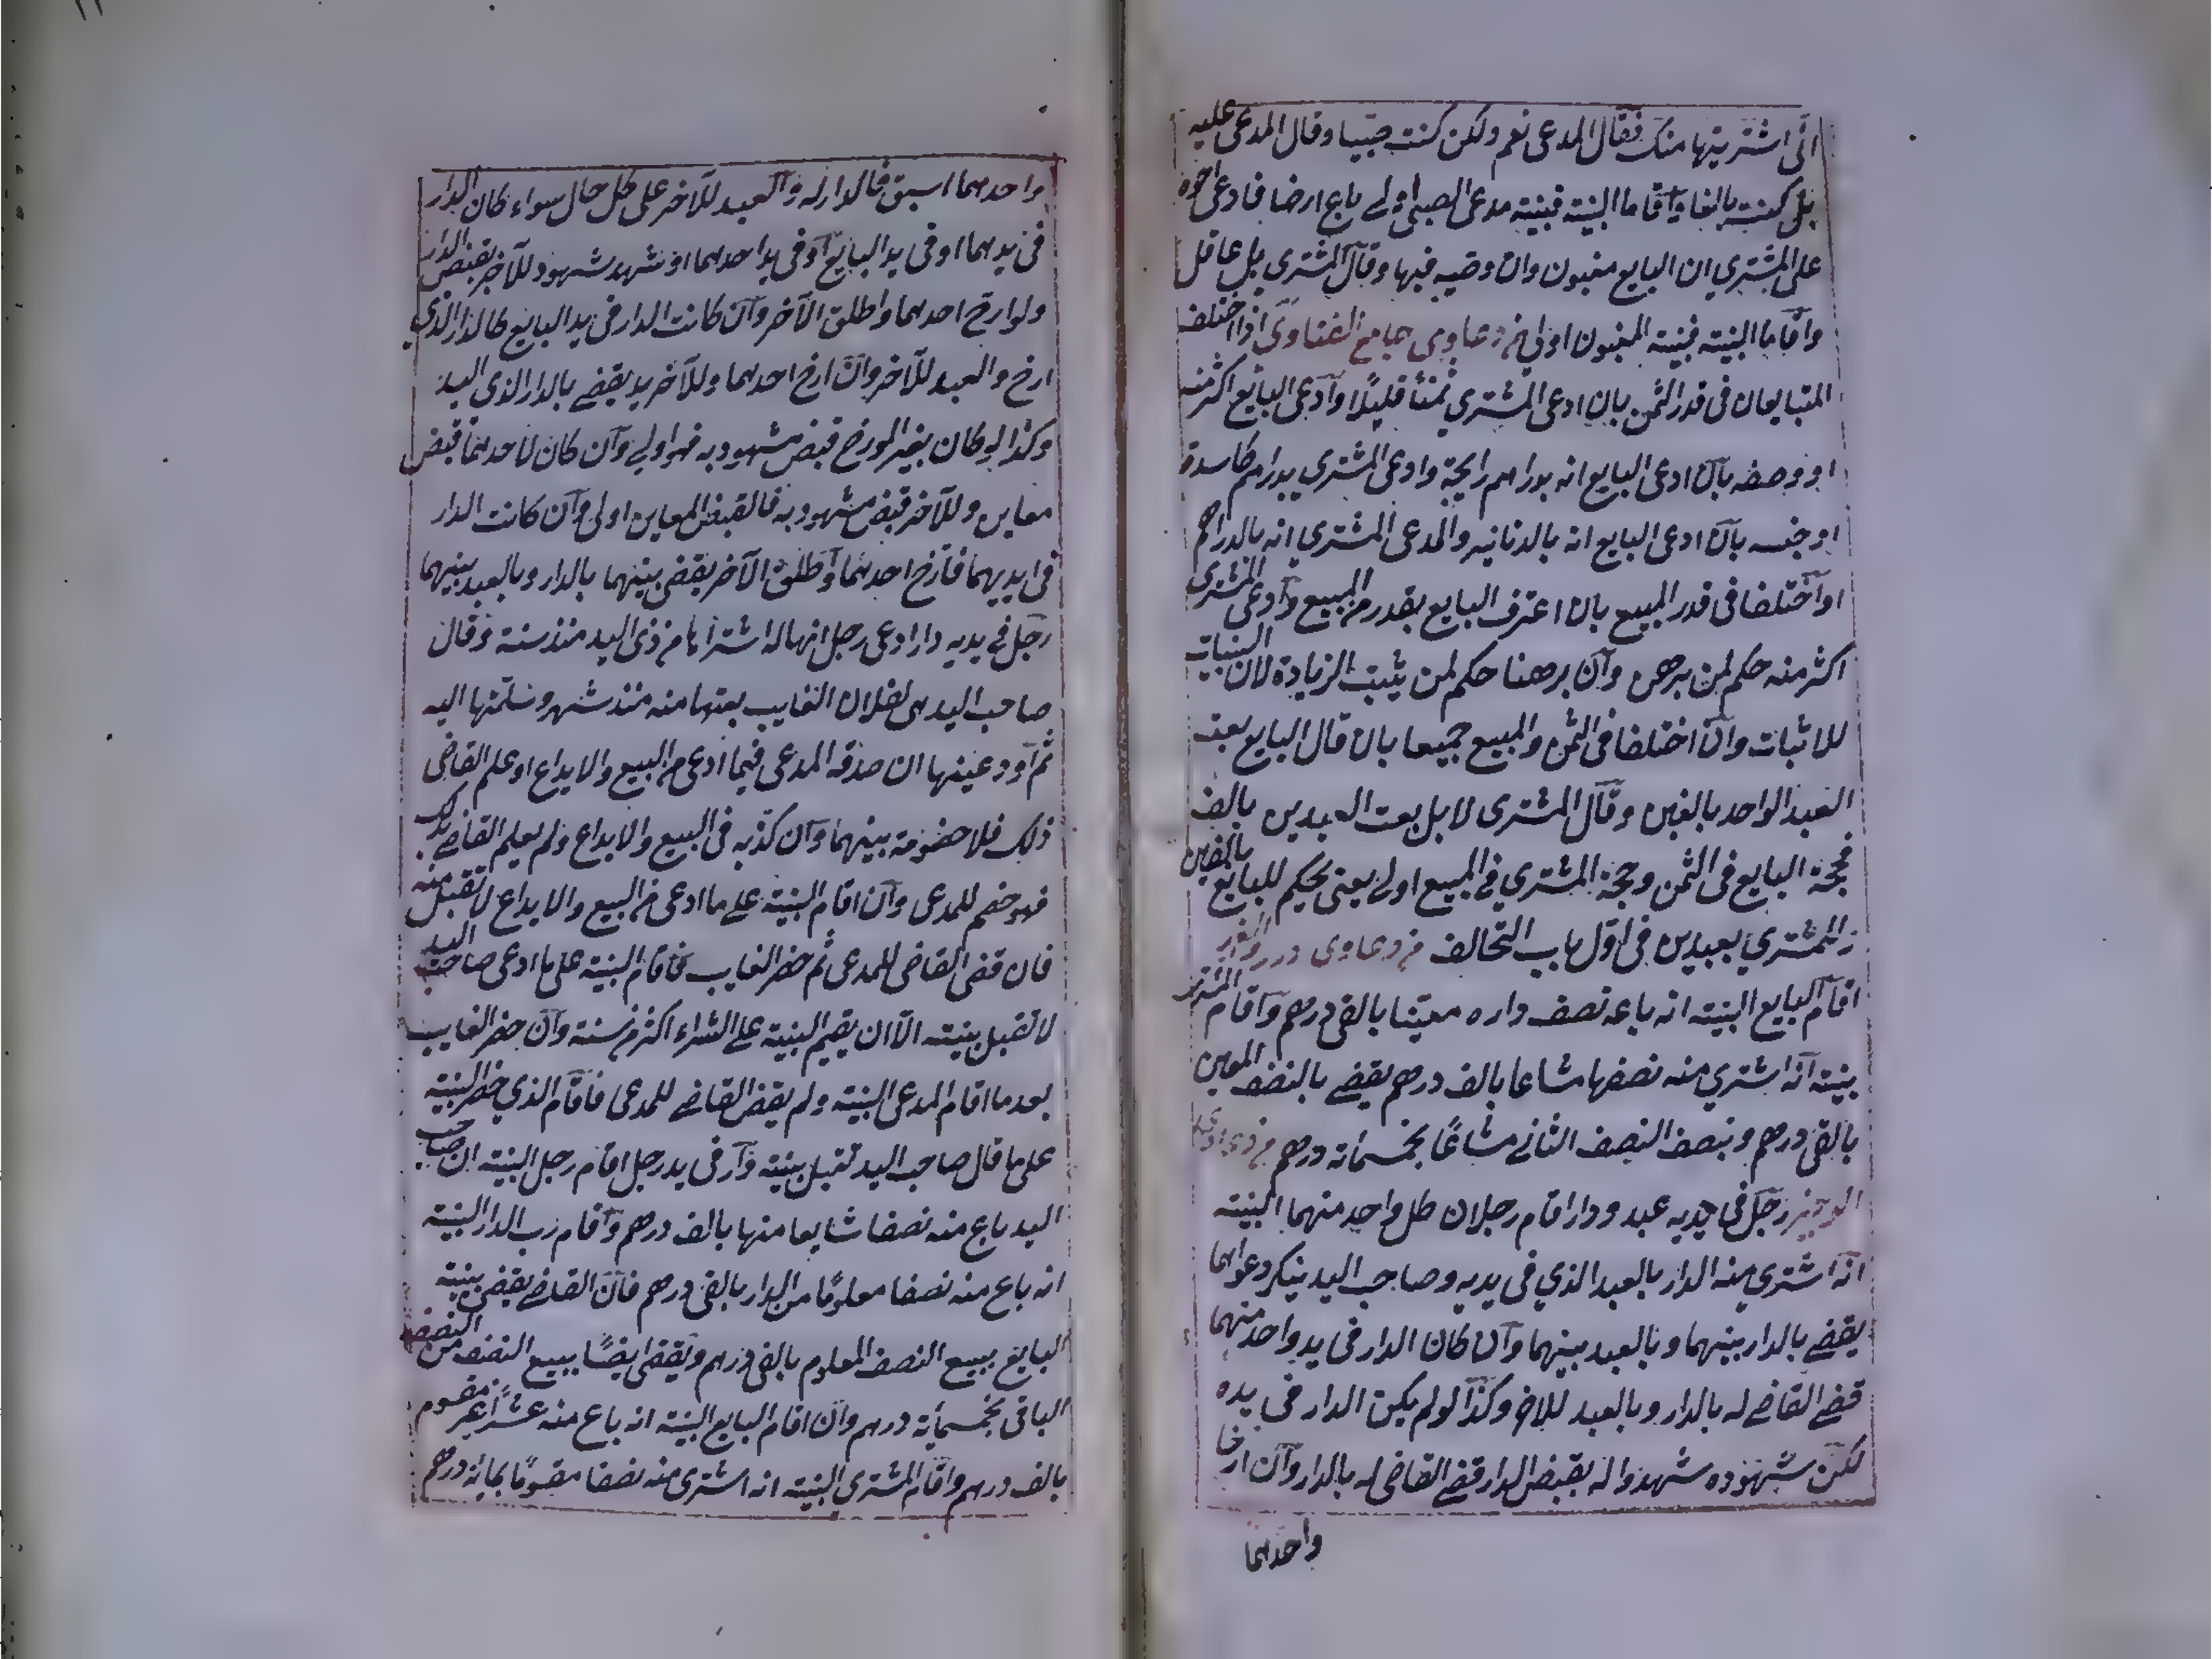 انى اشتريتها منك فقال المدعى نعم ولكن كنت صبيا وقال المدعى عليه
بل كنت بالغا واقاما البينة فبينة مدعى الصبى اولى باع ارضا فادعى اخوه
على المشتري ان البايع معتوه وان وصيه فيها وقال المشتري بل عاقل
واقاما البينة فبينة اولى من دعاوى جامع الفتاوى اذا اختلف
المتبايعان فى قدر الثمن بان ادعى المشتري ثمنا قليلا وادعى البايع اكثر منه
او وصفه بان ادعى البايع انه بدراهم رايجة وادعى المشتري بدراهم كاسدة
او جنسه بان ادعى البايع انه بالدنانير والمدعى المشتري انه بالدراهم
او اختلفا فى قدر المبيع بان اعترف البايع بقدر من المبيع وادعى المشترى
اكثر منه حكم لمن برهن وان برهنا حكم لمن يثبت الزيادة لان البينات
للاثبات وان اختلفا فى الثمن والمبيع جميعا بان قال البايع بعت
العبد الواحد بالفين وقال المشترى لا بل بعت العبدين بالف
فحجة البايع فى الثمن وحجة المشتري فى المبيع اولى يعنى يحكم للبايع بالفين
وللمشتري بعبدين فى اول باب التحالف من دعاوى درر وغرر
اقام البايع البينة انه باعه نصف داره معينا بالفى درهم واقام المشترى
بينته انه اشتري منه نصفها مشاعا بالف درهم يقضى بالنصف المعين
بالفى درهم وبنصف النصف الثانى مشاعا بخمسمائة درهم من دعاوى
الوجيز رجل فى يديه عبد ودار اقام رجلان كل واحد منهما البينة
انه اشترى منه الدار بالعبد الذي فى يديه وصاحب اليد ينكر دعواهما
يقضى بالدار بينهما وبالعبد بينهما وان كان الدار فى يد واحد منهما
قضى القاضى له بالدار وبالعبد للاخر وكذا لو لم يكن الدار فى يده
لكن شهوده شهدوا له بقبض الدار قضى القاضى له بالدار وان ارخا
واحدهما
واحدهما اسبق فالدار له والعبد للآخر على كل حال سواء كان الدار
فى يديهما او فى يد البايع او فى يد احدهما او شهد شهود للآخر بقبض الدار
ولو ارخ احدهما واطلق الآخر وان كانت الدار فى يد البايع فالدار للذي
ارخ والعبد للآخر وان ارخ احدهما وللآخر يد يقضى بالدار لذى اليد
وكذا لو كان بغير المورخ قبض مشهود به فهو اولى وان كان لاحدهما قبض
معاين وللآخر قبض مشهود به فالقبض المعاين اولى وان كانت الدار
فى ايديهما فارخ احدهما واطلق الآخر يقضى بينهما بالدار وبالعبد بينهما
رجل فى يديه دار ادعى رجل انها له اشتراها من ذى اليد منذ سنة وقال
صاحب اليد هى لفلان الغايب بعتها منه منذ شهر وسلمتها اليه
ثم اودعينها ان صدقه المدعى فيما ادعى من البيع والايداع او علم القاضى
ذلك فلا خصومة بينهما وان كذبه فى البيع والايداع ولم يعلم القاضى بذلك
فهو خصم للمدعى وان اقام البينة على ما ادعى من البيع والايداع لا تقبل منه
فان قضى القاضى للمدعى ثم حضر الغايب فاقام البينة على ما ادعى صاحب اليد
لا تقبل بينته الا ان يقيم البينة على الشراء اكثر من سنة وان حضر الغايب
بعد ما اقام المدعى البينة ولم يقض القاضى للمدعى فاقام الذي حضر البينة
على ما قال صاحب اليد تقبل بينته دار فى يد رجل اقام رجل البينة ان صاحب
اليد باع منه نصفا شايعا منها بالف درهم واقام رب الدار البينة
انه باع منه نصفا معلوما من الدار بالفى درهم فان القاضى يقضى ببينة
البايع ببيع النصف المعلوم بالفى درهم ويقضى ايضا ببيع النصف من النصف
الباقى بخمسمائة درهم وان اقام البايع البينة انه باع منه عشرا غير مقسوم
بالف درهم واقام المشتري البينة انه اشترى منه نصفا مقسوما بمائة درهم